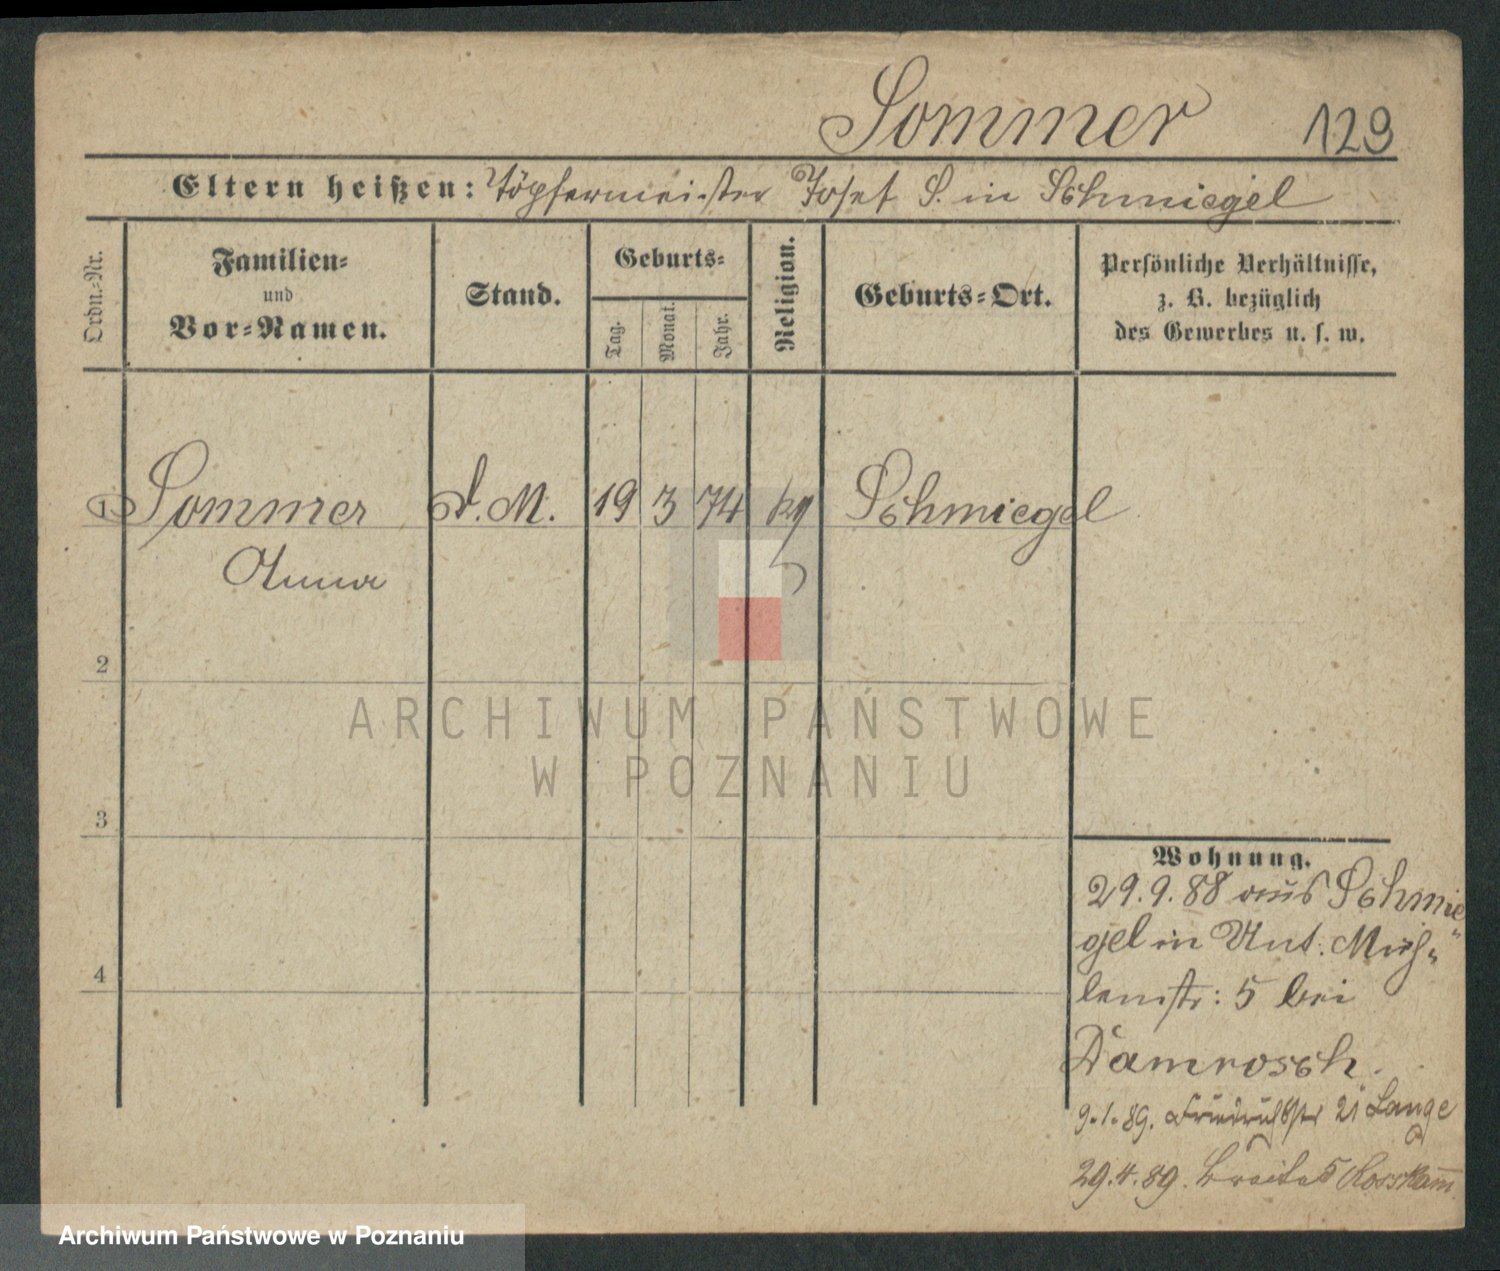 Sommer 129
Eltern heißen: Töpfermeister Josef S. in Schmiegel
Ordn.-Nr.
Familien-
und
Vor-Namen.
Stand.
Geburts-
Tag.
Monat.
Jahr.
Religion.
Geburts-Ort.
Persönliche Verhältnisse,
z. B. bezüglich
des Gewerbes u. s. w.
1 Sommer D.M. 19 3 74 kg Schmiegel
Anna
2
3
4
Wohnung.
29.9.88 aus Schmie
gel in Unt. Müh-
lenstr: 5 bei
Damrosch.
9.1.89. Friedrichstr 21 Lange
29.4.89. Breite 5 Rosskam̅
ARCHIWUM PAŃSTWOWE
W POZNANIU
Archiwum Państwowe w Poznaniu